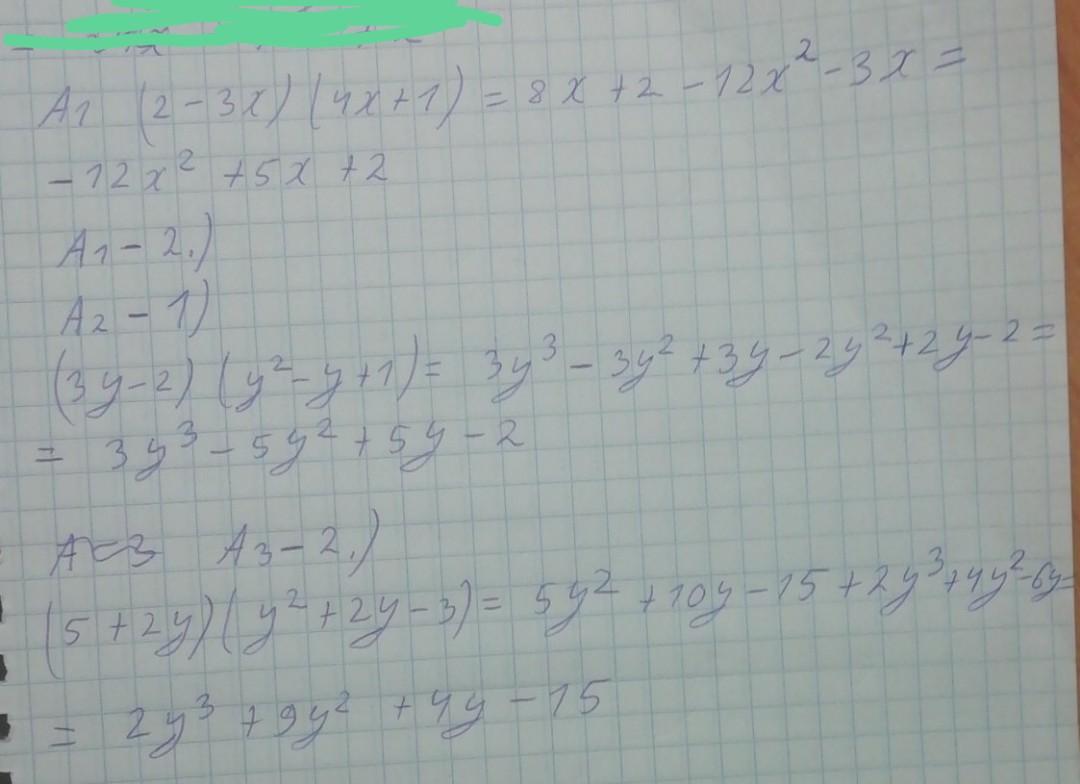 A1 (2-3x)(4x+1)=8x+2-12x²-3x=
-12x²+5x+2
A1-2.)
A2-1)
(3y-2)(y²-y+1)=3y³-3y²+3y-2y²+2y-2=
=3y³-5y²+5y-2
A3-2.)
(5+2y)(y²+2y-3)=5y²+10y-15+2y³+4y²-6y=
=2y³+9y²+4y-15